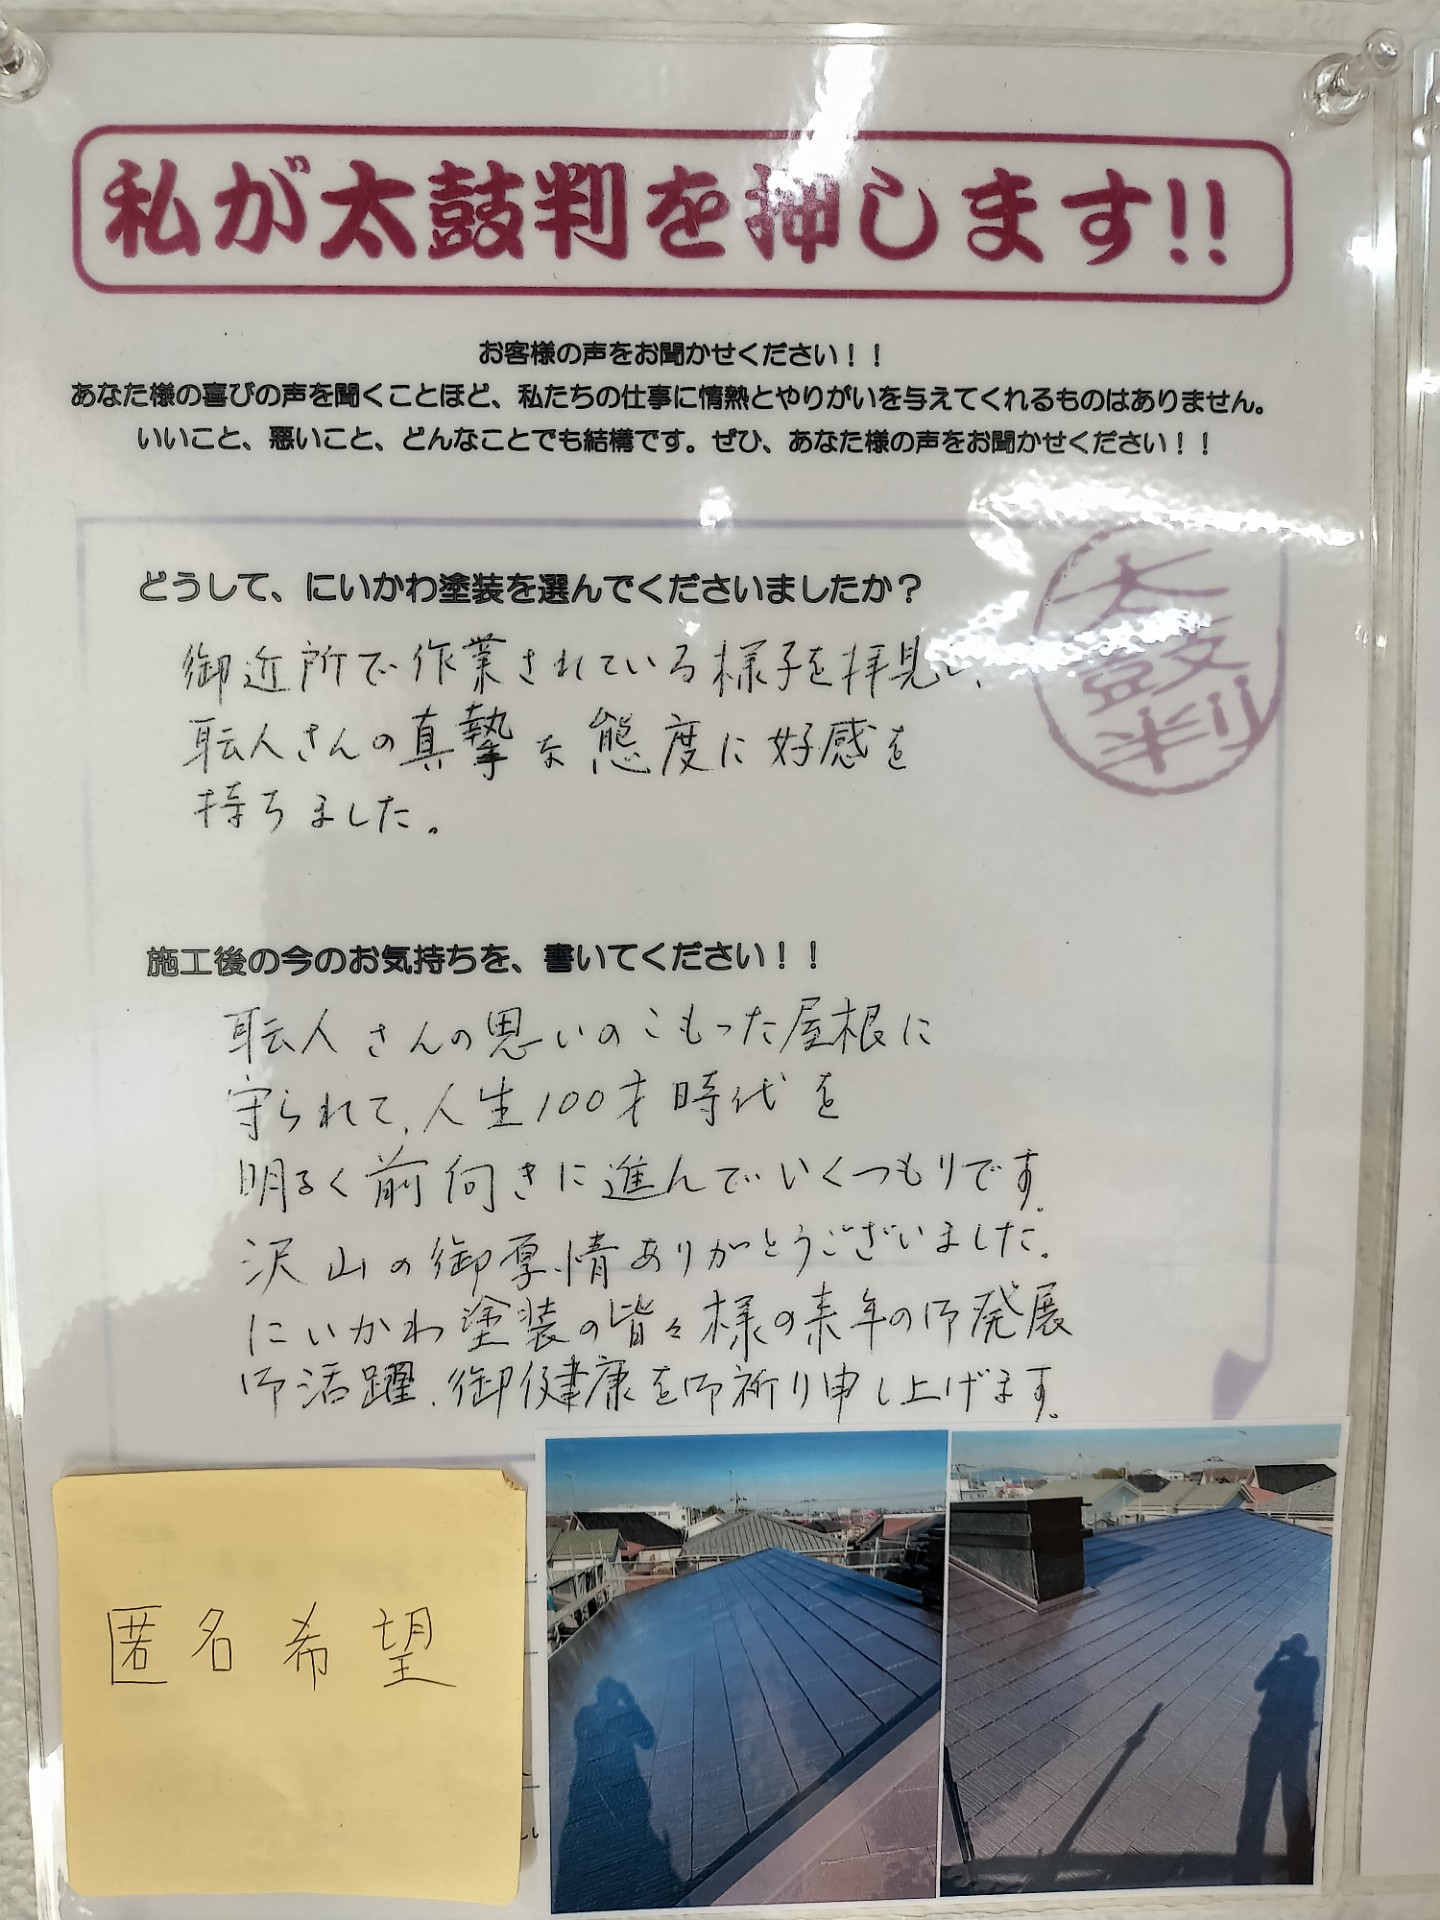 私が太鼓判を押します!!
お客様の声をお聞かせください！！
あなた様の喜びの声を聞くことほど、私たちの仕事に情熱とやりがいを与えてくれるものはありません。
いいこと、悪いこと、どんなことでも結構です。ぜひ、あなた様の声をお聞かせください！！
太鼓判
どうして、にいかわ塗装を選んでくださいましたか？
御近所で作業されている様子を拝見し、
耺人さんの真摯な態度に好感を
持ちました。
施工後の今のお気持ちを、書いてください！！
耺人さんの思いのこもった屋根に
守られて、人生100才時代を
明るく前向きに進んでいくつもりです。
沢山の御厚情ありがとうございました。
にいかわ塗装の皆々様の来年の御発展
御活躍、御健康を御祈り申し上げます。
匿名希望